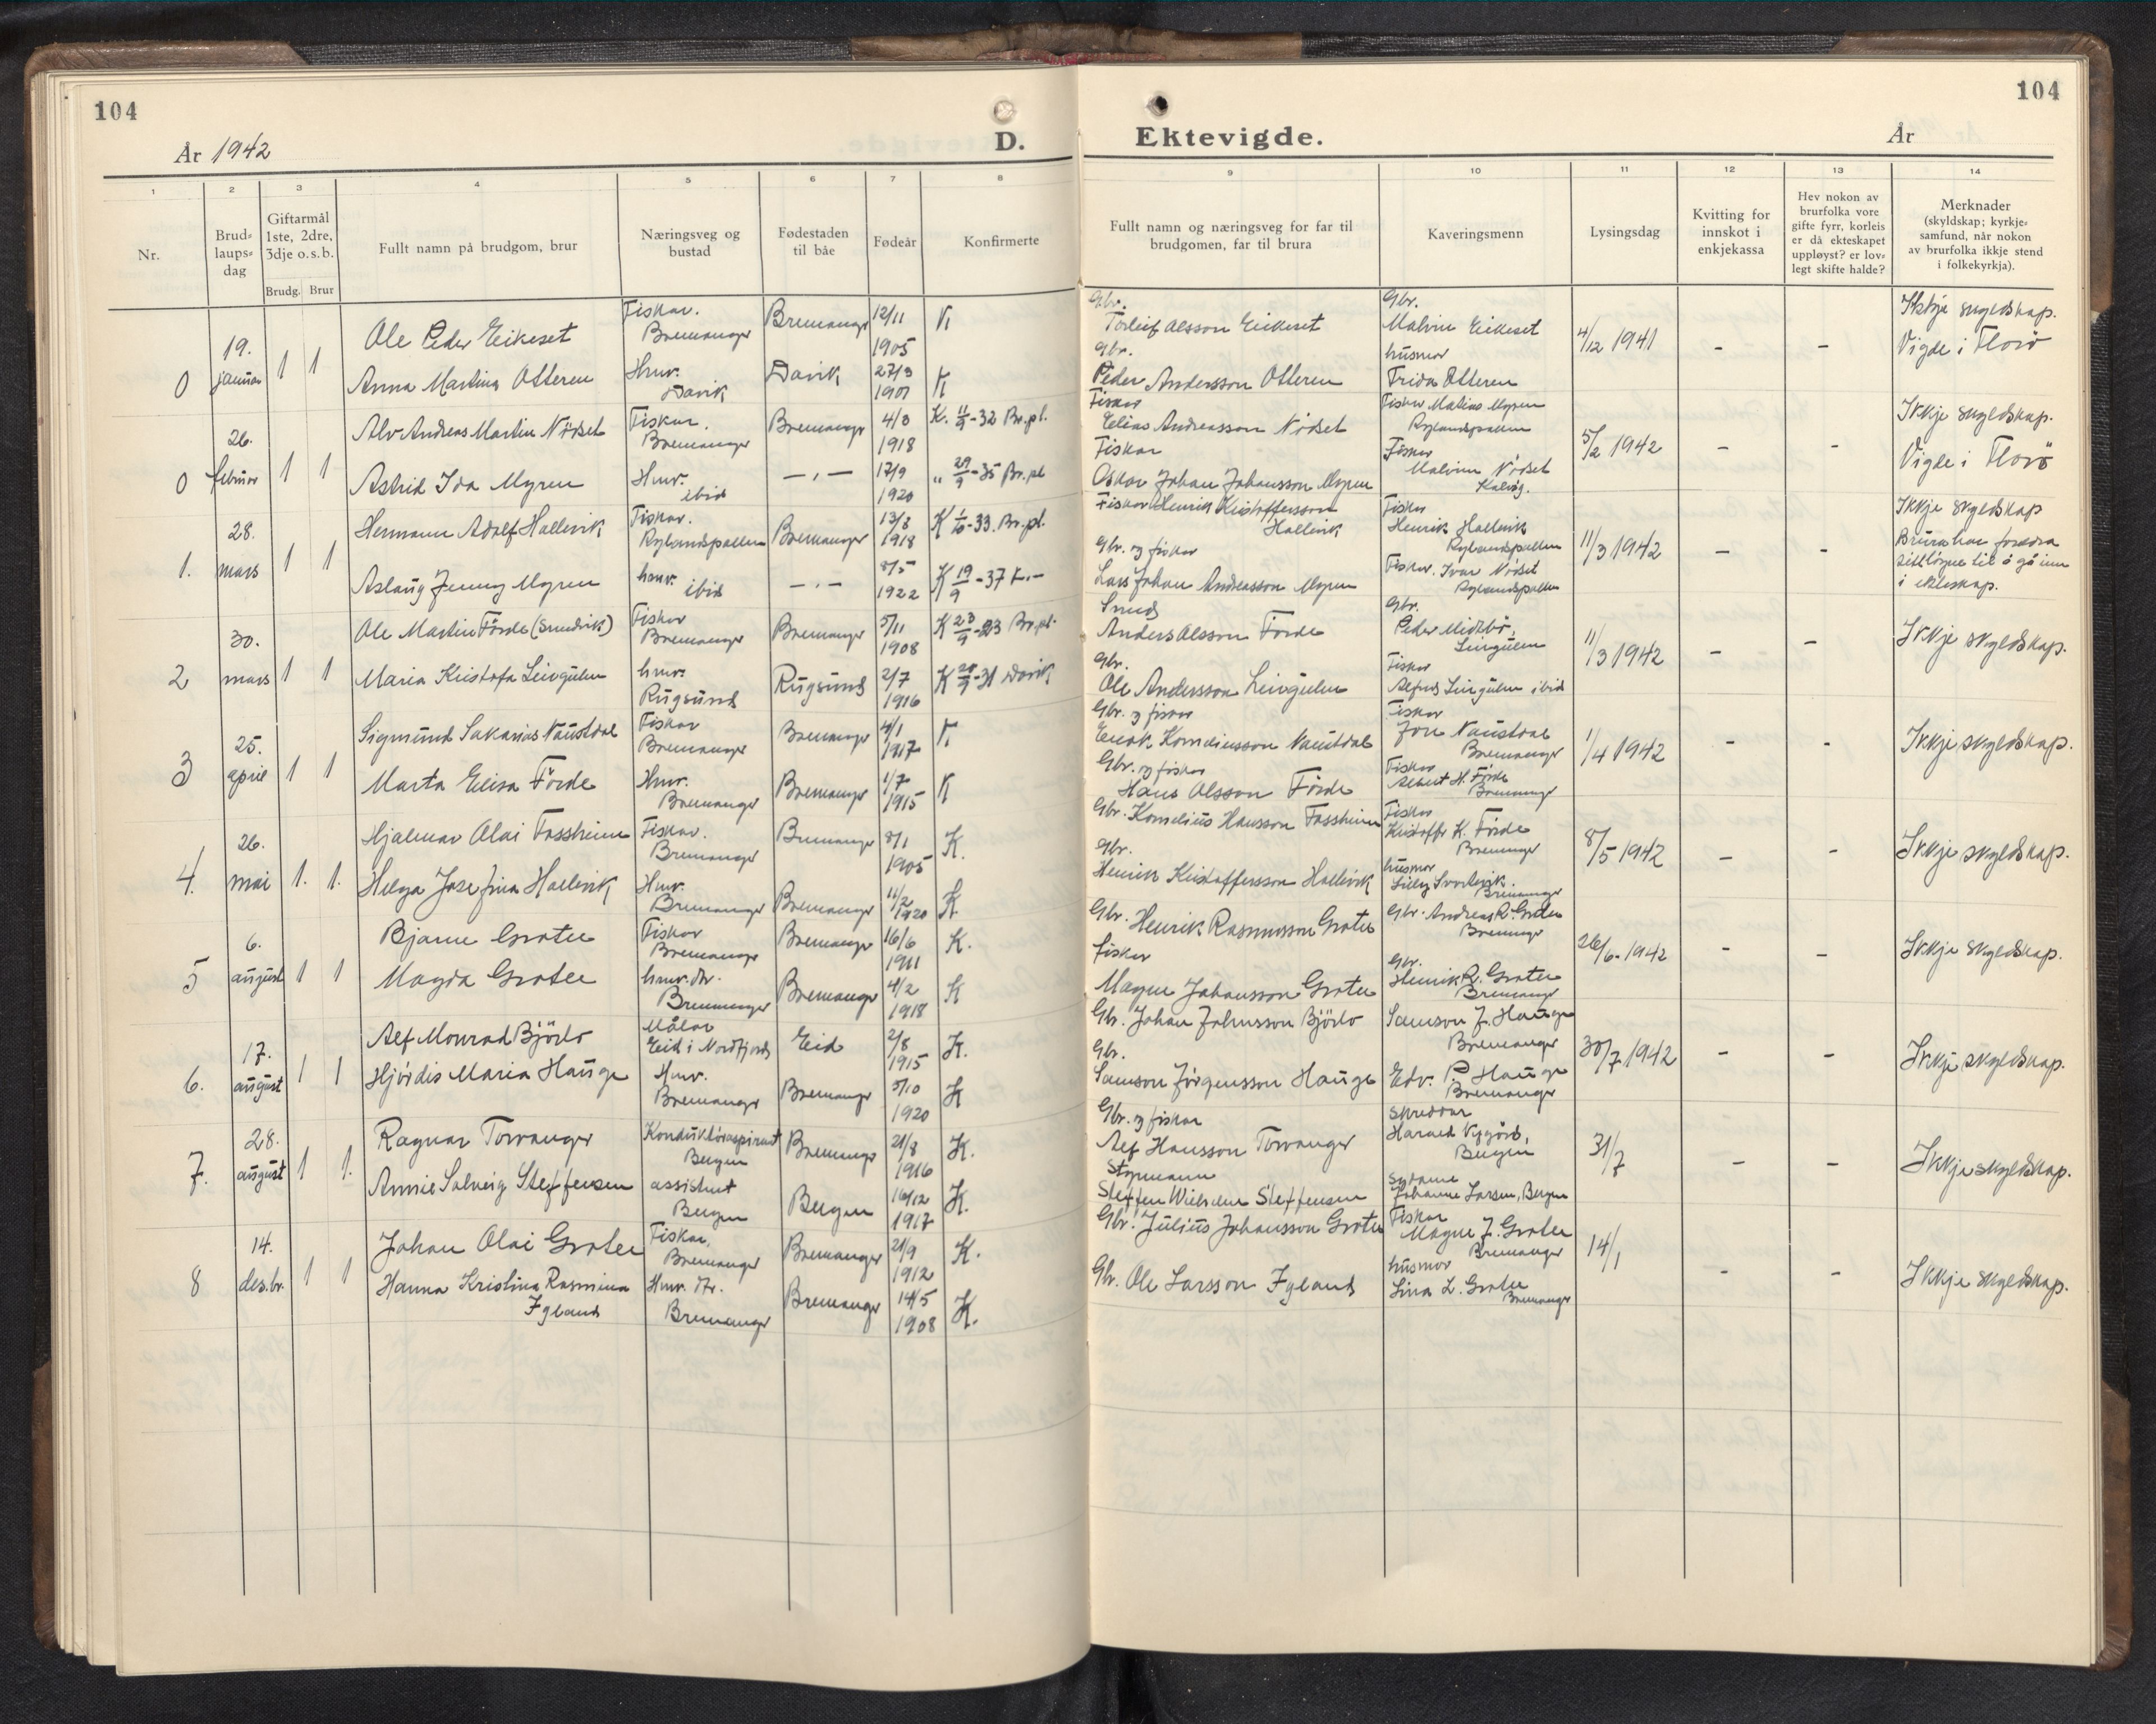 104
År 1942
D.
1 2 3 4 5 6 7 8
Nr.
Brud-
laups-
dag
Giftarmål
1ste, 2dre,
3dje o.s.b.
Brudg. Brur
Fullt namn på brudgom, brur
Næringsveg og
bustad
Fødestaden
til båe
Fødeår
Konfirmerte
0
19.
januar
1 1
Ole Peder Eikeset
Fiskar.
Bremanger
Bremanger
12/11
1905
K
Anna Martina Otteren
Hmv.
Davik
Davik
27/3
1907
K
0
26.
februar
1 1
Alv Andreas Martin Nödset
Fiskar.
Bremanger
Bremanger
4/3
1918
K. 11/9-32 Br.pl.
Astrid Ida Myren
Hmv.
ibid
— „ —
17/9
1920
„ 29/9-35 Br.pl
1.
28.
mars
1 1
Hermann Adolf Hallevik
Fiskar.
Rylandspollen
Bremanger
13/8
1918
K 1/10-33. Br.pl.
Aslaug Jenny Myren
hmv.
ibid
— „ —
8/5
1922
K 19/9-37
2
30.
mars
1 1
Ole Martin Förde (Smidvik)
Fiskar
Bremanger
Bremanger
5/11
1908
K 23/9-23 Br.pl.
Maria Kristofa Leirgulen
hmv.
Rugsund
Rugsund
2/7
1916
K 20/9-31 Davik
3
25.
april
1 1
Sigmund Sakarias Naustdal
Fiskar
Bremanger
Bremanger
4/1
1917
K
Marta Elisa Förde
Hmv.
Bremanger
Bremanger
1/7
1915
K
4.
26.
mai
1. 1.
Hjalmar Olai Fossheim
Fiskar.
Bremanger
Bremanger
8/1
1905
K.
Helga Josefina Hallevik
Hmv.
Bremanger
Bremanger
11/2
1920
K.
5
6.
august
1 1
Bjarne Grotle
Fiskar
Bremanger
Bremanger
16/6
1911
K.
Magda Grotle
hmv. dtr.
Bremanger
Bremanger
4/2
1918
K
6.
17.
august
1 1
Alf Monrad Björlo
Målar
Eid i Nordfjord
Eid
2/8
1915
K.
Hjördis Maria Hauge
Hmv.
Bremanger
Bremanger
5/10
1920
K
7.
28.
august
1 1.
Ragnar Torvanger
Konduktöraspirant
Bergen
Bremanger
21/8
1916
K.
Annie Solveig Steffensen
assistent
Bergen
Bergen
16/12
1917
K.
8
14.
des.br.
1 1
Johan Olai Grotle
Fiskar,
Bremanger
Bremanger
21/9
1912
K.
Hanna Kristina Rasmina
Igland
Hmv. dtr.
Bremanger
Bremanger
14/5
1908
K.
104
Ektevigde.
År
9 10 11 12 13 14
Fullt namn og næringsveg for far til
brudgomen, far til brura
Kaveringsmenn
Lysingsdag
Kvitting for
innskot i
enkjekassa
Hev nokon av
brurfolka vore
gifte fyrr, korleis
er då ekteskapet
uppløyst? er lov-
legt skifte halde?
Merknader
(skyldskap; kyrkje-
samfund, når nokon
av brurfolka ikkje stend
i folkekyrkja).
Gbr.
Torleif Olsson Eikeset
Gbr.
Peder Andersson Otteren
Gbr.
Malvin Eikeset
husmor
Frida Otteren
4/12 1941
– –
Ikkje skyldskap.
Vigde i Florö
Fiskar
Elias Andreasson Nödset
Fiskar
Oskar Johan Johansson Myren
Fiskar Matias Myren
Rylandspollen
Fiskar
Malvin Nödset
Kalvåg.
5/2 1942
– –
Ikkje skyldskap.
Vigde i Florö
Fiskar Henrik Kristoffersson
Hallevik
Gbr. og fiskar
Lars Johan Andreasson Myren
Fiskar
Henrik Hallevik
Rylandspollen
Fiskar. Ivar Nödset
Rylandspollen
11/3 1942
– –
Ikkje skyldskap
Brura har foreldra
sitt löyve til å gå inn
i ekteskap.
Smed
Anders Olsson Förde
Gbr.
Ole Andersson Leirgulen
Gbr.
Peder Midtbö,
Leirgulen
Fiskar
Alfred Leirgulen ibid
11/3 1942
– –
Ikkje skyldskap.
Gbr. og fiskar
Enok Korneliusson Naustdal
Gbr. og fiskar
Hans Olsson Förde
Fiskar
Jon Naustdal
Bremanger
Fiskar
Albert H. Förde
Bremanger
1/4 1942
– –
Ikkje skyldskap.
Gbr. Kornelius Hansson Fossheim
Gbr.
Henrik Kristoffersson Hallevik
Fiskar
Kristoffer K. Förde
Bremanger
husmor
Bremanger
8/5 1942
– –
Ikkje skyldskap.
Gbr. Henrik Rasmusson Grotle
fiskar
Magne Johansson Grotle
Gbr. Andreas R. Grotle
Bremanger
Gbr.
Henrik R. Grotle
Bremanger
26/6-1942
– –
Ikkje skyldskap.
Gbr. Johan Johnsson Björlo
Gbr.
Samson Jörgensson Hauge
Samson J. Hauge
Bremanger
Edv. P. Hauge
Bremanger
30/7 1942
– –
Ikkje skyldskap.
Gbr. og fiskar
Alf Hansson Torvanger
Styrmann
Steffen Wilhelm Steffensen
skreddar
Harald Nygård,
Bergen
Sydame
Johanne Larsen, Bergen
31/7
– –
Ikkje skyldskap.
Gbr. Julius Johansson Grotle
Gbr. Ole Larsson Igland
Fiskar
Magne J. Grotle
Bremanger
husmor
Lina L. Grotle
Bremanger
14/1
– –
Ikkje skyldskap.